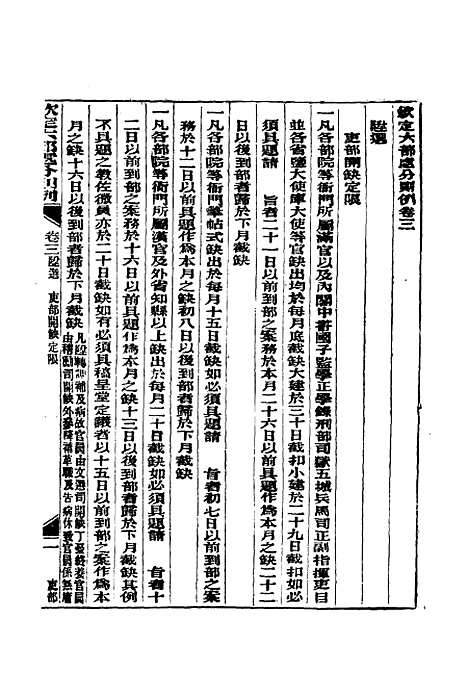 欽定六部處分則例卷三
陞選
吏部開缺定限
一凡各部院等衙門所屬滿官以及內閣中書國子監學正學錄刑部司獄五城兵馬司正副指揮吏目
並各省鹽大使庫大使等官缺出均於每月底截缺大建於三十日截扣小建於二十九日截扣如必
須具題請　旨者二十一日以前到部之案務於本月二十六日以前具題作爲本月之缺二十二
日以後到部者歸於下月截缺
一凡各部院等衙門筆帖式缺出於每月十五日截缺如必須具題請　旨者初七日以前到部之案
務於十二日以前具題作爲本月之缺初八日以後到部者歸於下月截缺
一凡各部院等衙門所屬漢官及外省知縣以上缺出於每月二十日截缺如必須具題請　旨者十
二日以前到部之案務於十六日以前具題作爲本月之缺十三日以後到部者歸於下月截缺其例
不具題之教佐微員亦於二十日截缺如有必須具稿呈堂定議者以十五日以前到部之案作爲本
月之缺十六日以後到部者歸於下月截缺凡陞轉調補及病故官員由文選司開缺丁憂終養官員
由稽勳司開缺外參降補革職及告病休致官員係無庸
欽定六部處分則例
卷三陞選　吏部開缺定限
一
吏部